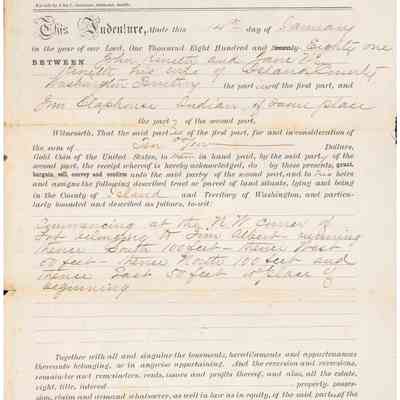 This Indenture, Made this 4th day of January
in the year of our Lord, One Thousand Eight Hundred and Seventy Eighty one
BETWEEN John Kineth and Jane
Kineth his wife of Island County
Washington Territory the parties of the first part, and
Jim Claphouse Indian, of same place
the party of the second part,
Witnesseth, That the said parties of the first part, for and in consideration
of the sum of Ten Dollars,
Gold Coin of the United States, to them in hand paid, by the said party of the
second part, the receipt whereof is hereby acknowledged, do by these presents, grant,
bargain, sell, convey and confirm unto the said party of the second part, and to his heirs
and assigns the following described tract or parcel of land situate, lying and being
in the County of Island and Territory of Washington, and particu-
larly bounded and described as follows, to-wit:
Commencing at the N.W. Corner of
Lot belonging to Jim Albert running
thence South 100 feet - thence West
50 feet - thence North 100 feet and
thence East 50 feet to place of
beginning
Together with all and singular the tenements, hereditaments and appurtenances
thereunto belonging, or in anywise appertaining. And the reversion and reversions,
remainder and remainders, rents, issues and profits thereof; and also, all the estate,
right, title, interest property, posses-
sion, claim and demand whatsoever, as well in law as in equity, of the said parties of the